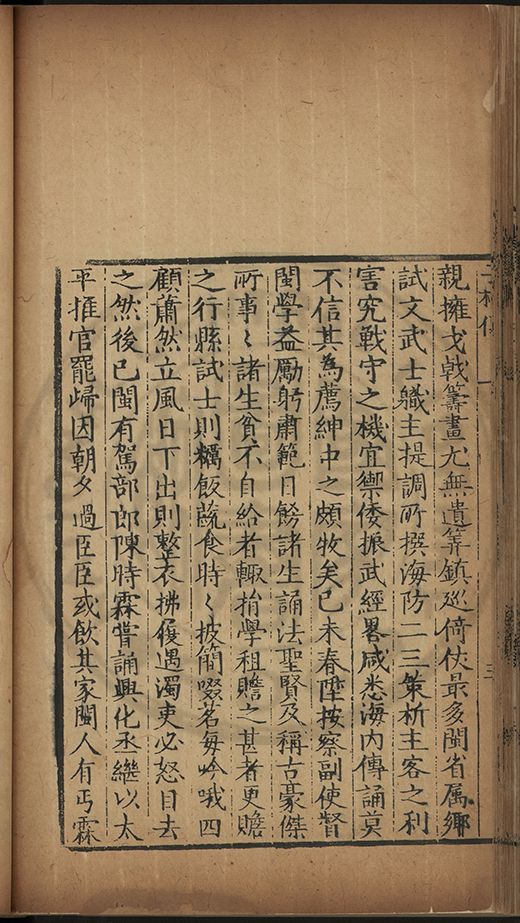 親擁戈戟籌畫尤無遺筭鎮廵倚仗最多閩省属鄉
試文武士軄主提調所撰海防二三策析主客之利
害究戰守之機宜禦倭振武經畧咸悉海内傳誦莫
不信其為薦紳中之頗牧矣已未春陞按察副使督
閩學益勵躬肅範日餙諸生誦法聖賢及稱古豪傑
所事〻諸生貧不自給者輙捐學租贍之甚者更贍
之行縣試士則糲飯蔬食時〻披簡啜茗每吟哦四
顧蕭然立風日下出則整衣拂履遇濁吏必怒目去
之然後已閩有駕部郎陳時霖嘗誦興化丞繼以太
平推官罷歸因朝夕過臣臣或飲其家閩人有丐霖